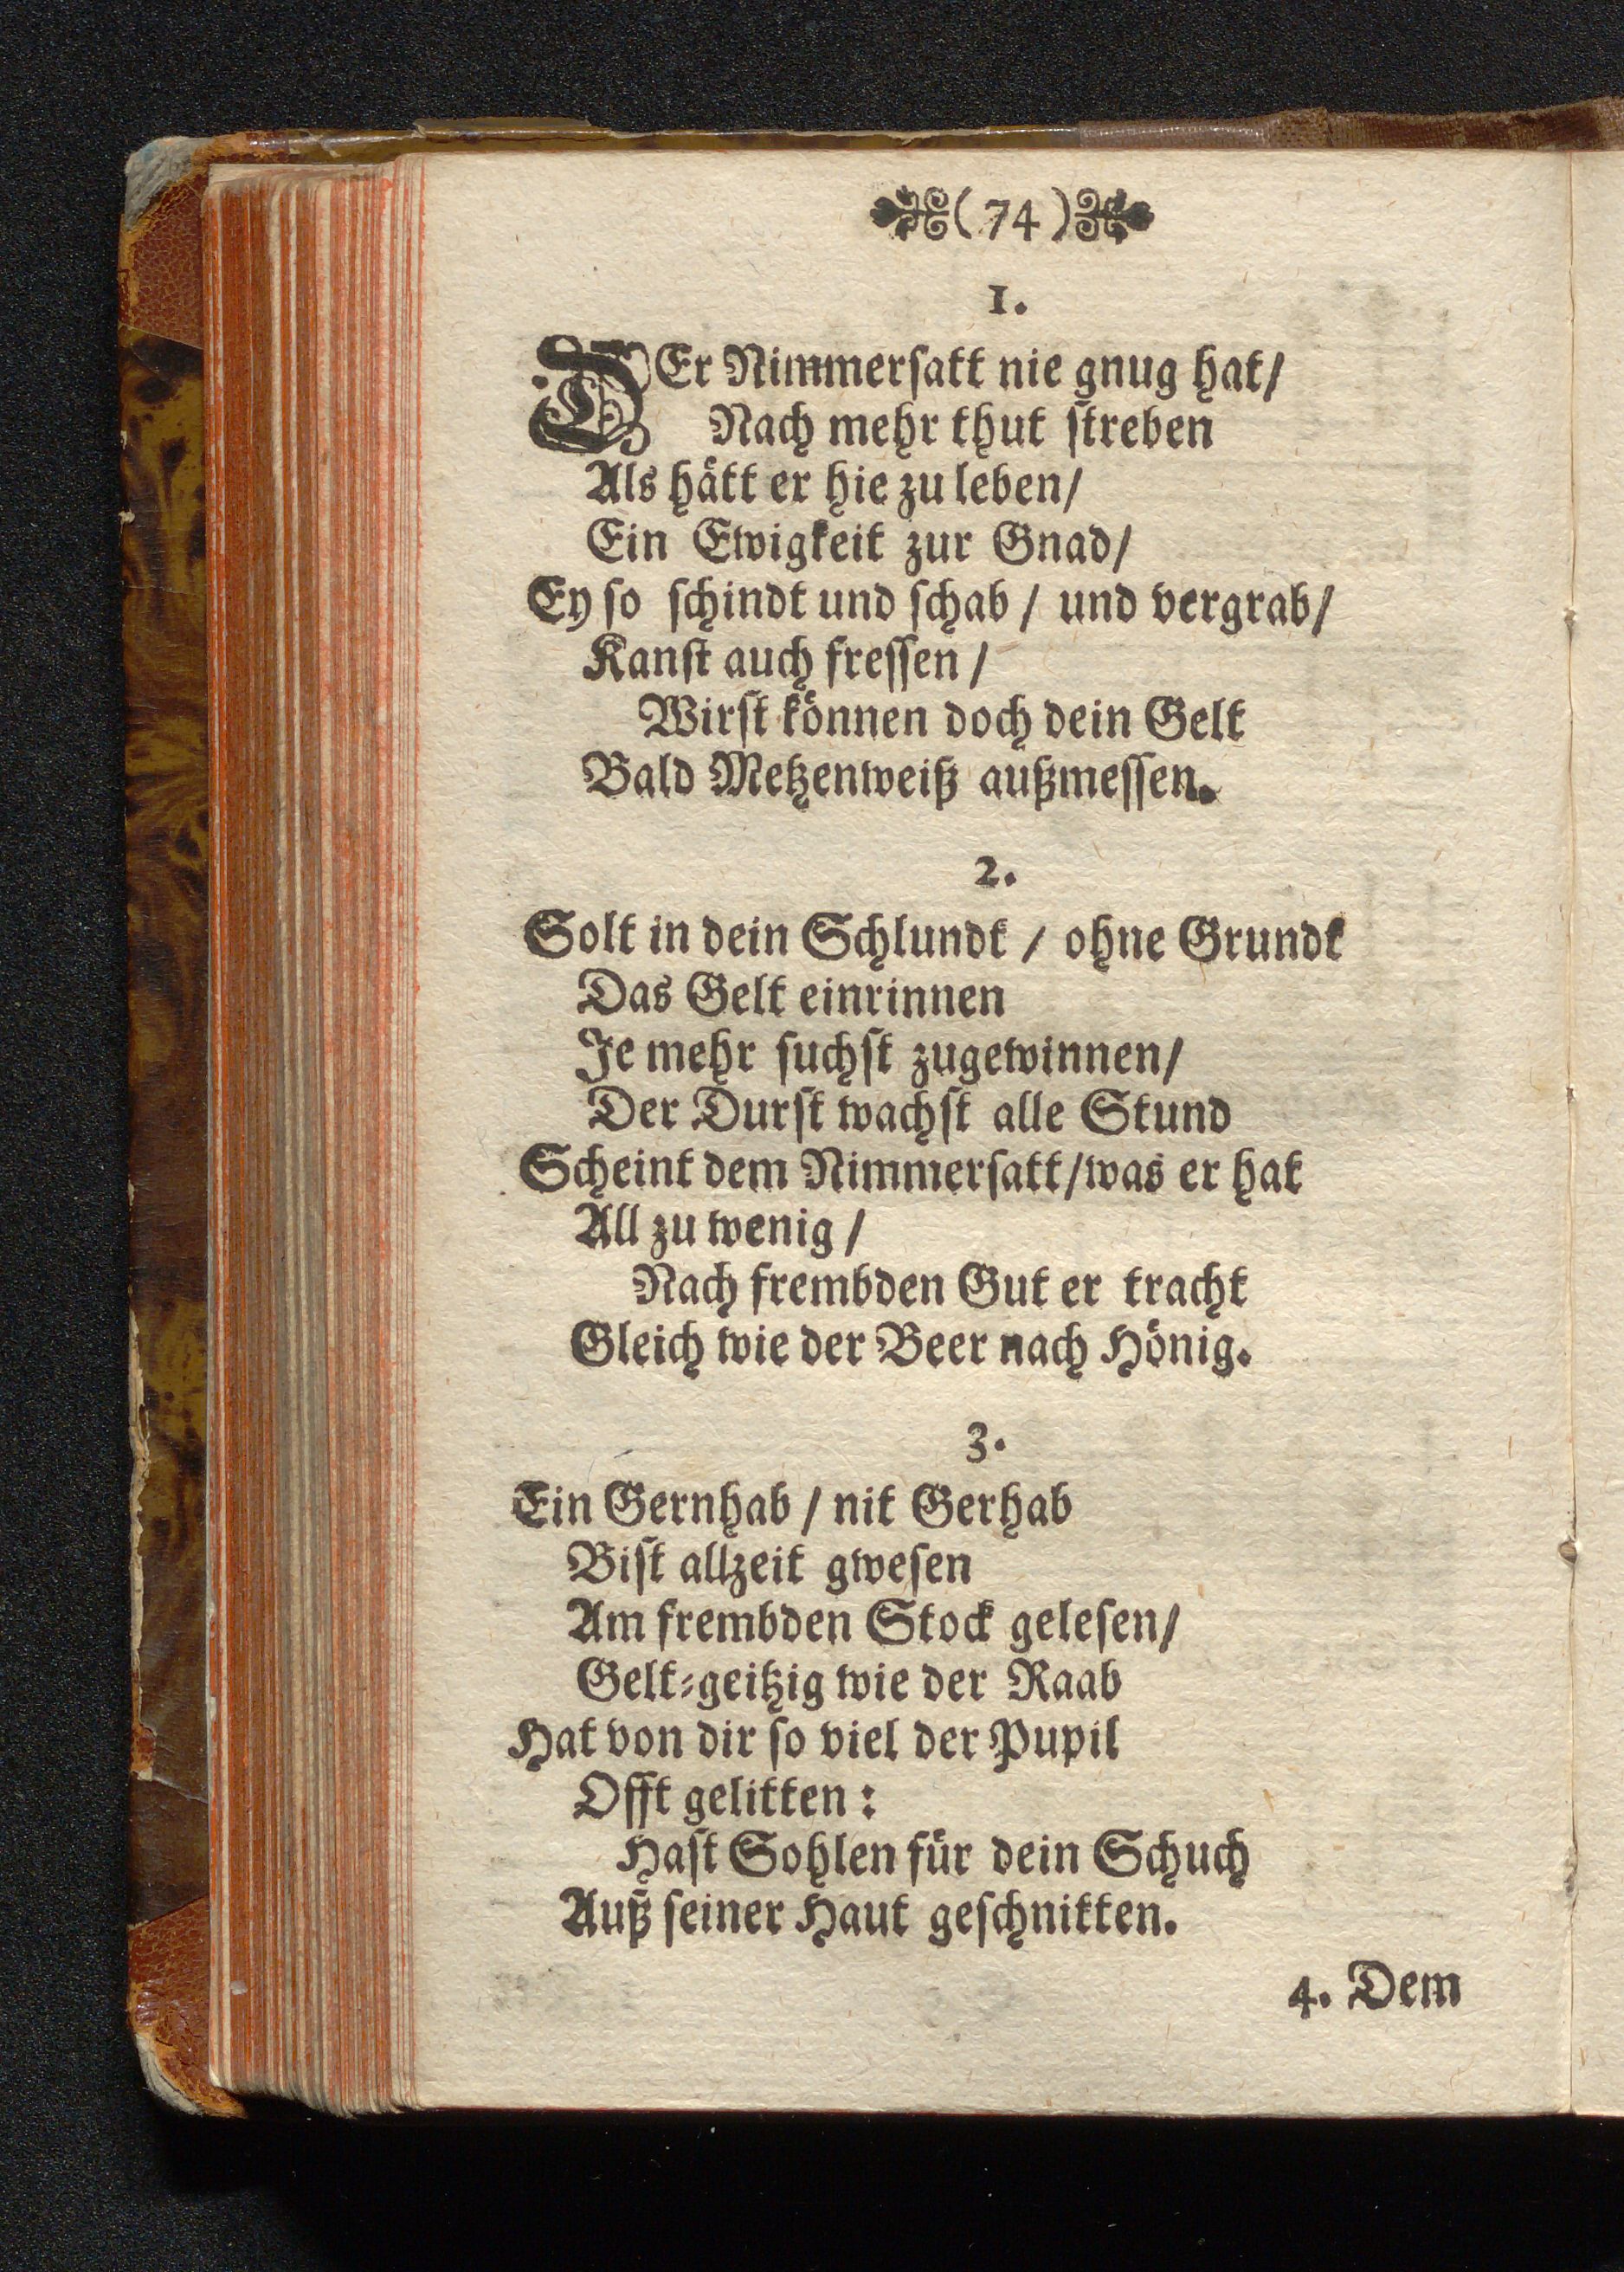 (74)
1.
DEr Nimmerſatt nie gnug hat/
Nach mehr thut ſtreben
Als hätt er hie zu leben/
Ein Ewigkeit zur Gnad/
Ey ſo ſchindt und ſchab / und vergrab/
Kanſt auch freſſen /
Wirſt können doch dein Gelt
Bald Metzenweiß außmeſſen.
2.
Solt in dein Schlundt / ohne Grundt
Das Gelt einrinnen
Je mehr ſuchſt zugewinnen/
Der Durſt wachſt alle Stund
Scheint dem Nimmerſatt/was er hat
All zu wenig /
Nach frembden Gut er tracht
Gleich wie der Beer nach Hönig.
3.
Ein Gernhab / nit Gerhab
Biſt allzeit gweſen
Am frembden Stock geleſen/
Gelt-geitzig wie der Raab
Hat von dir ſo viel der Pupil
Offt gelitten :
Haſt Sohlen für dein Schuch
Auß ſeiner Haut geſchnitten.
4. Dem